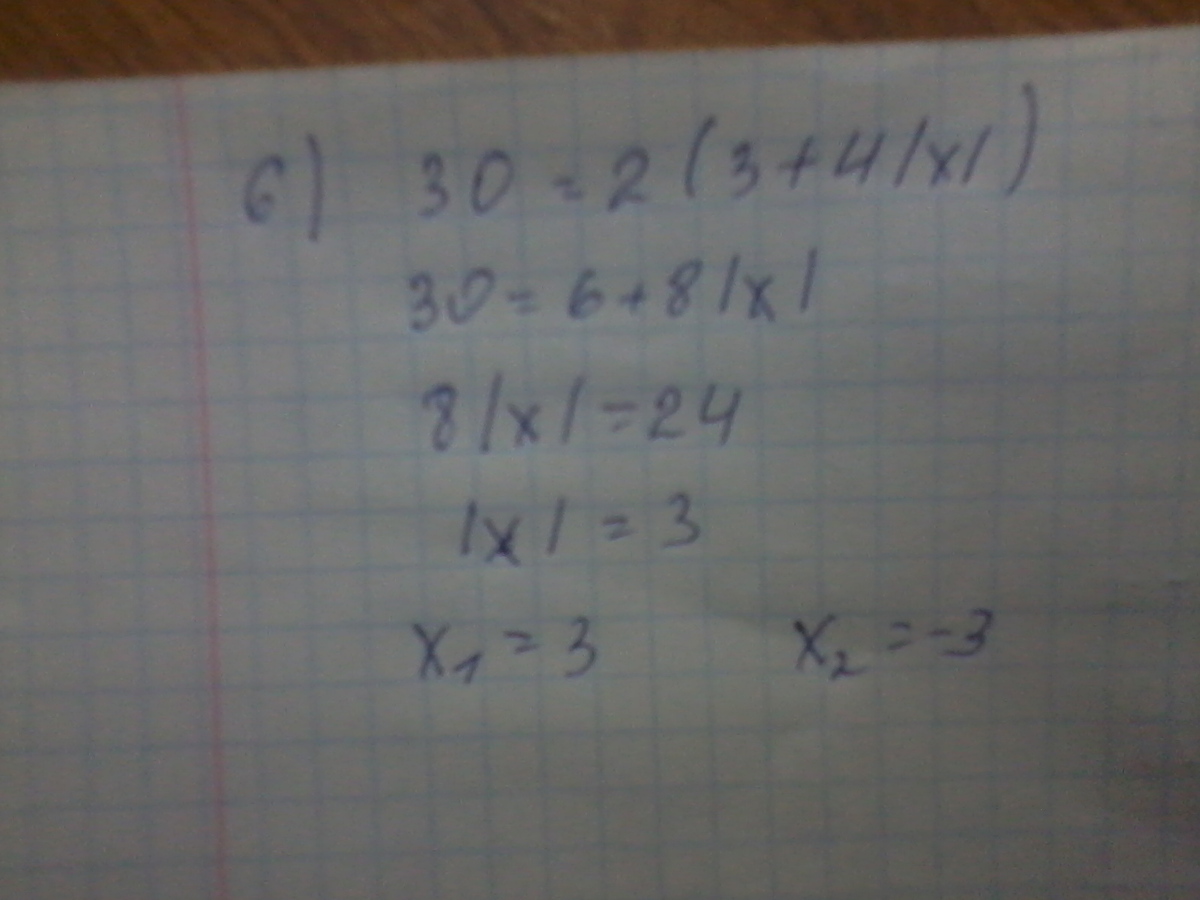 6) 30 = 2 (3 + 4 |x|)
30 = 6 + 8 |x|
8 |x| = 24
|x| = 3
x₁ = 3 x₂ = -3